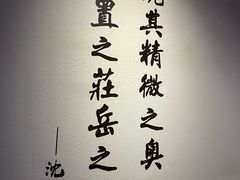 其精微之奧
置之莊岳之
—沈